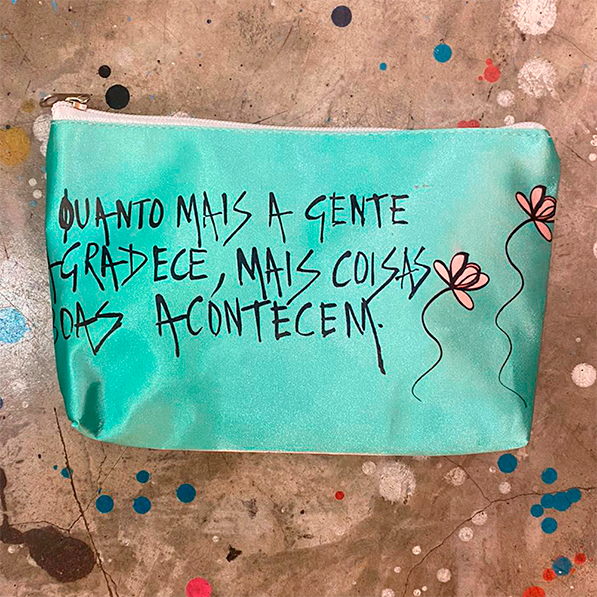 QUANTO MAIS A GENTE
AGRADECE, MAIS COISAS
BOAS ACONTECEM.